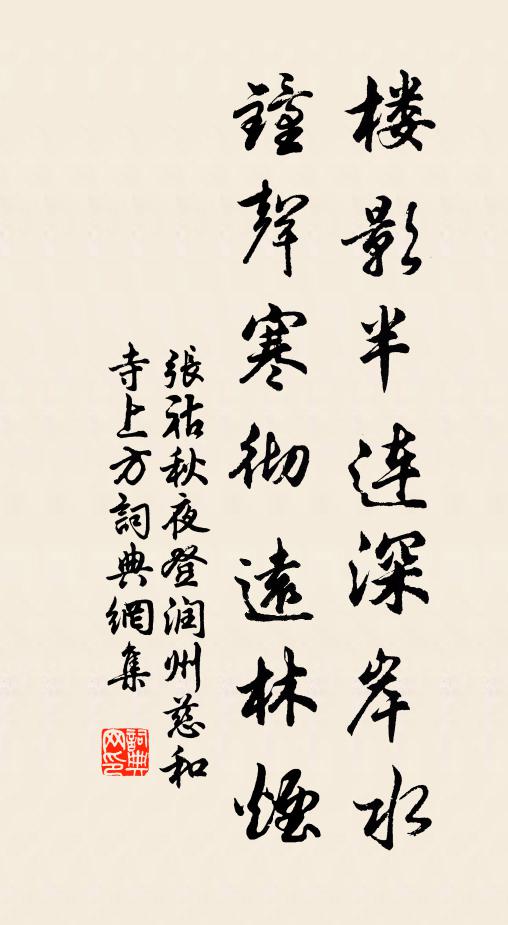 楼影半连深岸水
鐘聲寒彻遠林煙
張祜秋夜登润州慈和
寺上方詞典網集
詞典网印